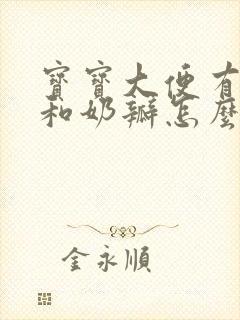 寶寶大便有
和奶瓣怎麼
金永順